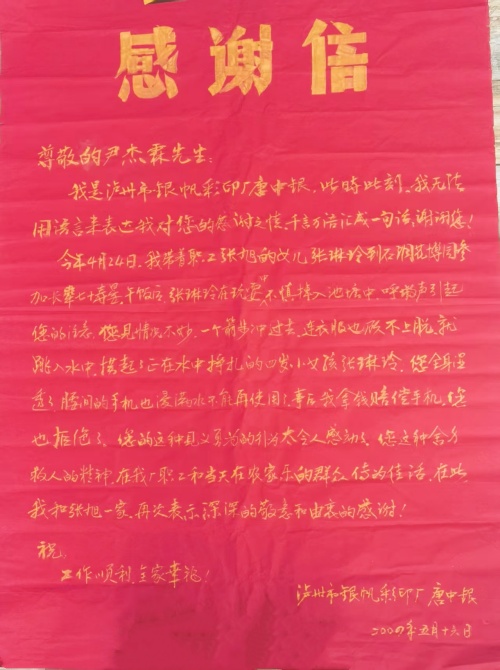 感谢信
尊敬的尹杰霖先生:
我是泸州市银帆彩印厂唐中银,此时此刻,我无法
用语言来表达我对您的感谢之情,千言万语汇成一句话,谢谢您!
今年4月24日,我带着职工张旭的女儿张琳玲到石洞花博园参
加长辈七十寿宴,午饭后,张琳玲在玩耍中不慎掉入池塘中,呼救声引起
您的注意,您见情况不妙,一个箭步冲过去,连衣服也顾不上脱,就
跳入水中,捞起了正在水中挣扎的四岁小女孩张琳玲,您全身湿
透了,腰间的手机也浸满水不能再使用了,事后我拿钱赔偿手机,您
也拒绝了,您的这种见义勇为的行为太令人感动了,您这种舍身
救人的精神,在我厂职工和当天在农家乐的群众传为佳话,在此,
我和张旭一家,再次表示深深的敬意和由衷的感谢!
祝
工作顺利,全家幸福!
泸州市银帆彩印厂 唐中银
2009年五月十六日